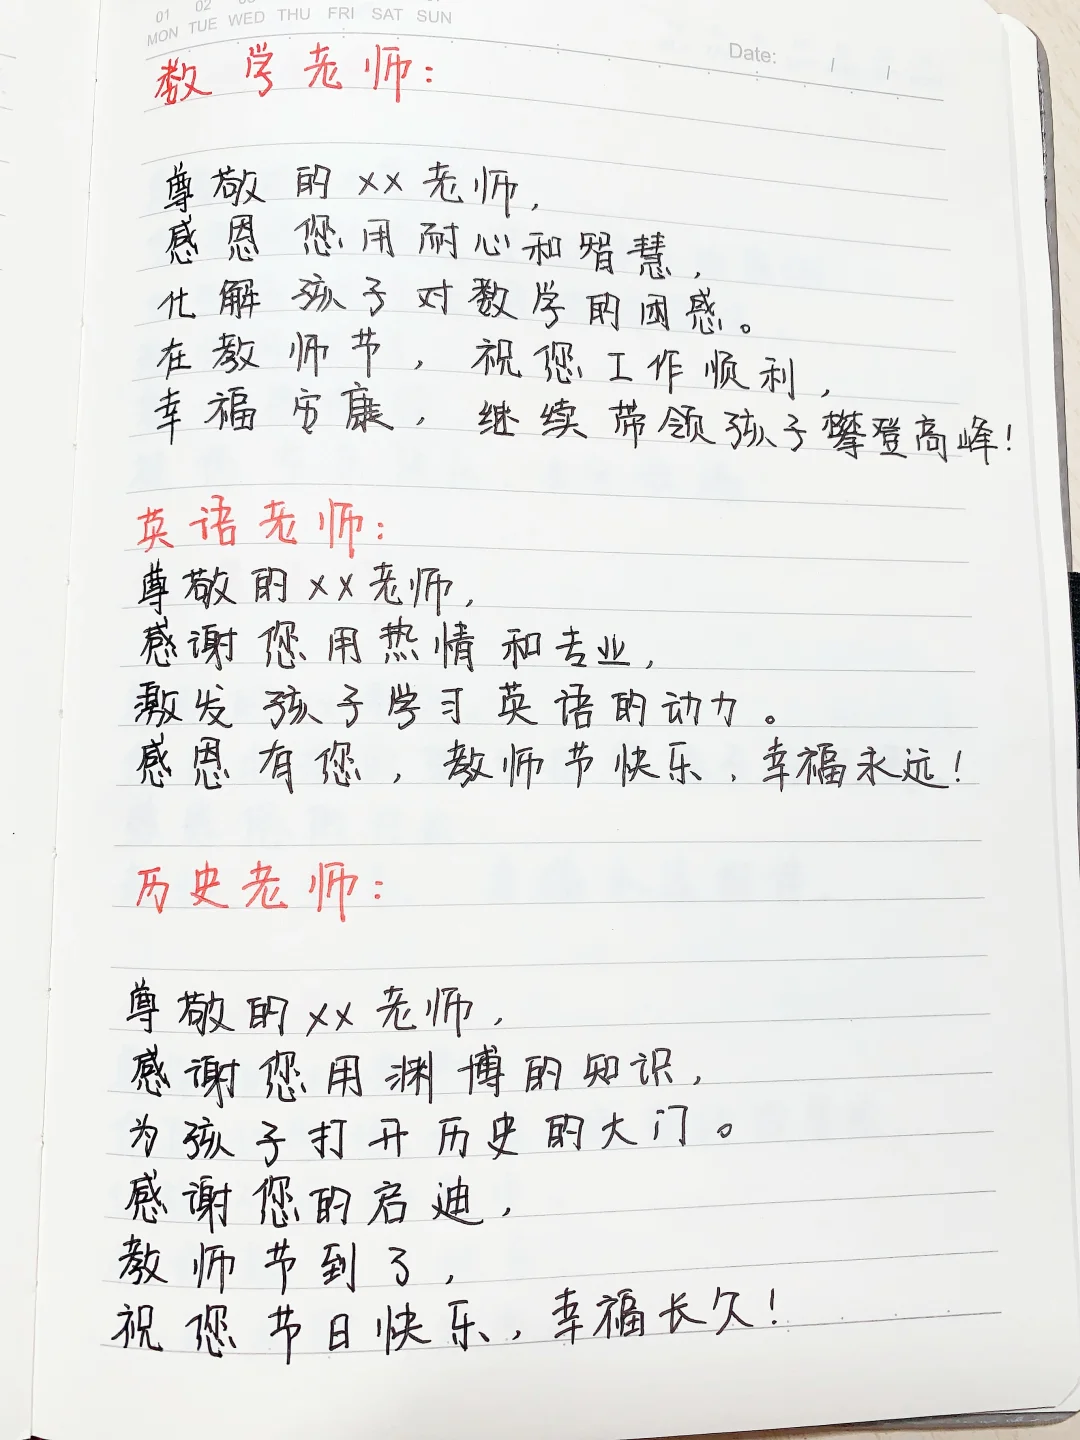 01 02
MON TUE WED THU FRI SAT SUN
Date: / /
数学老师:
尊敬的xx老师,
感恩您用耐心和智慧,
化解孩子对数学的困惑。
在教师节,祝您工作顺利,
幸福安康,继续带领孩子攀登高峰!
英语老师:
尊敬的xx老师,
感谢您用热情和专业,
激发孩子学习英语的动力。
感恩有您,教师节快乐,幸福永远!
历史老师:
尊敬的xx老师,
感谢您用渊博的知识,
为孩子打开历史的大门。
感谢您的启迪,
教师节到了,
祝您节日快乐,幸福长久!